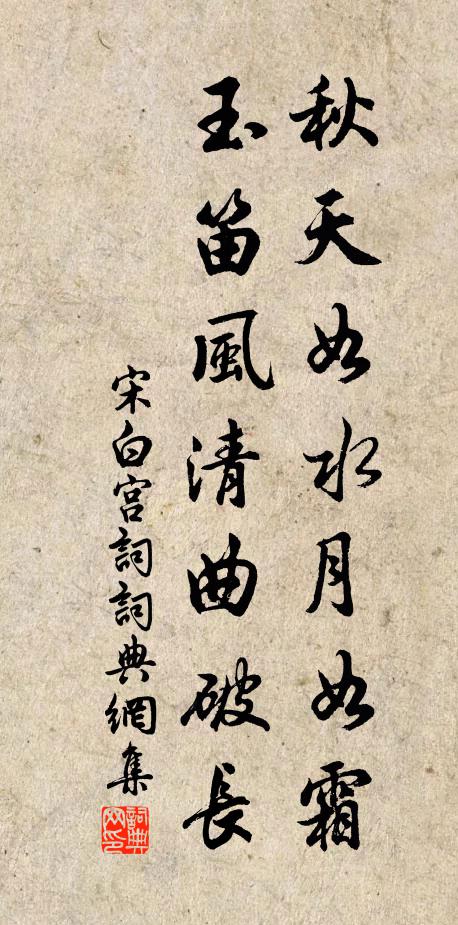 秋天如水月如霜
玉笛風清曲破長
宋白宮詞詞典網集
詞典
网印